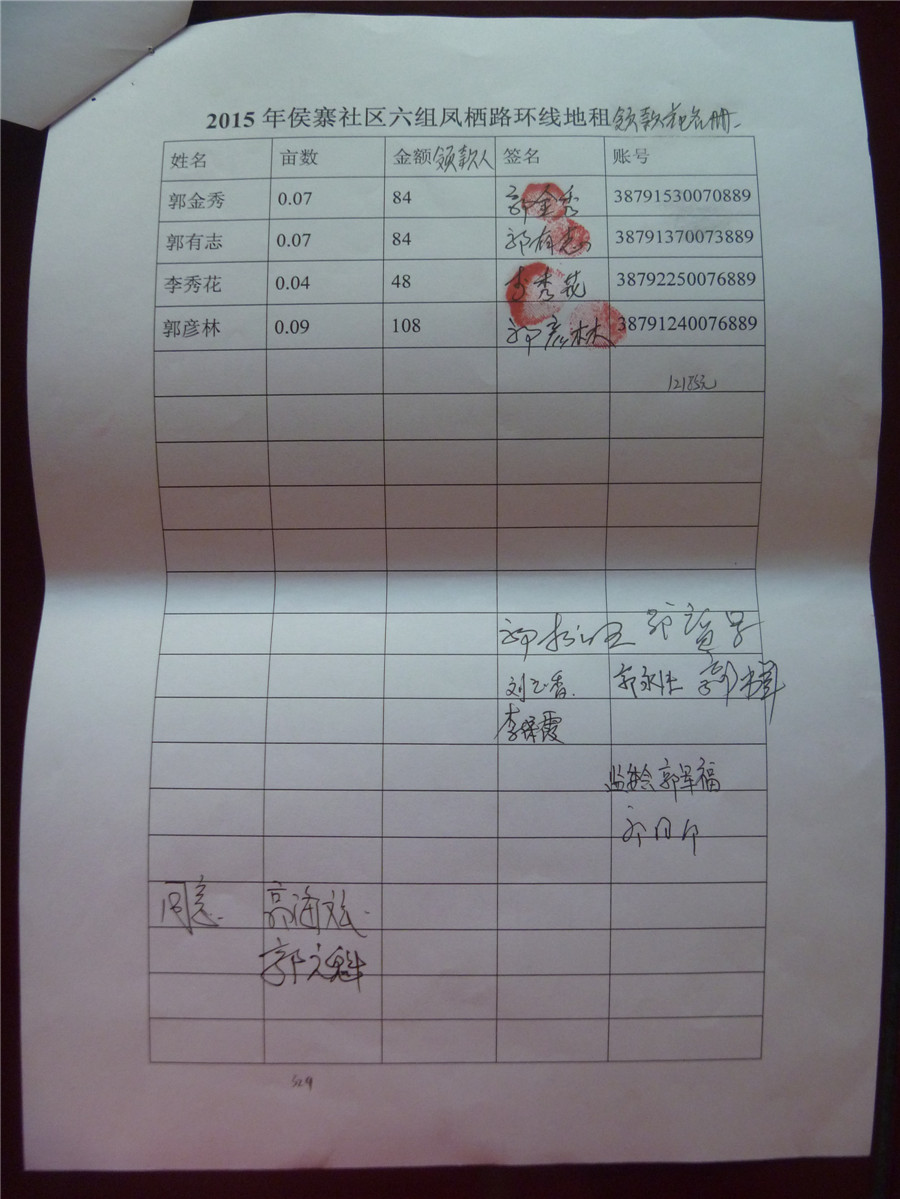 2015 年侯寨社区六组凤栖路环线地租领款花名册.
姓名 亩数 金额领款人 签名 账号
郭金秀 0.07 84 郭金秀 38791530070889
郭有志 0.07 84 郭有志 38791370073889
李秀花 0.04 48 李秀花 38792250076889
郭彦林 0.09 108 郭彦林 38791240076889
刘玉香 郭永法
霞
郭军福
同意.
郭文魁
329